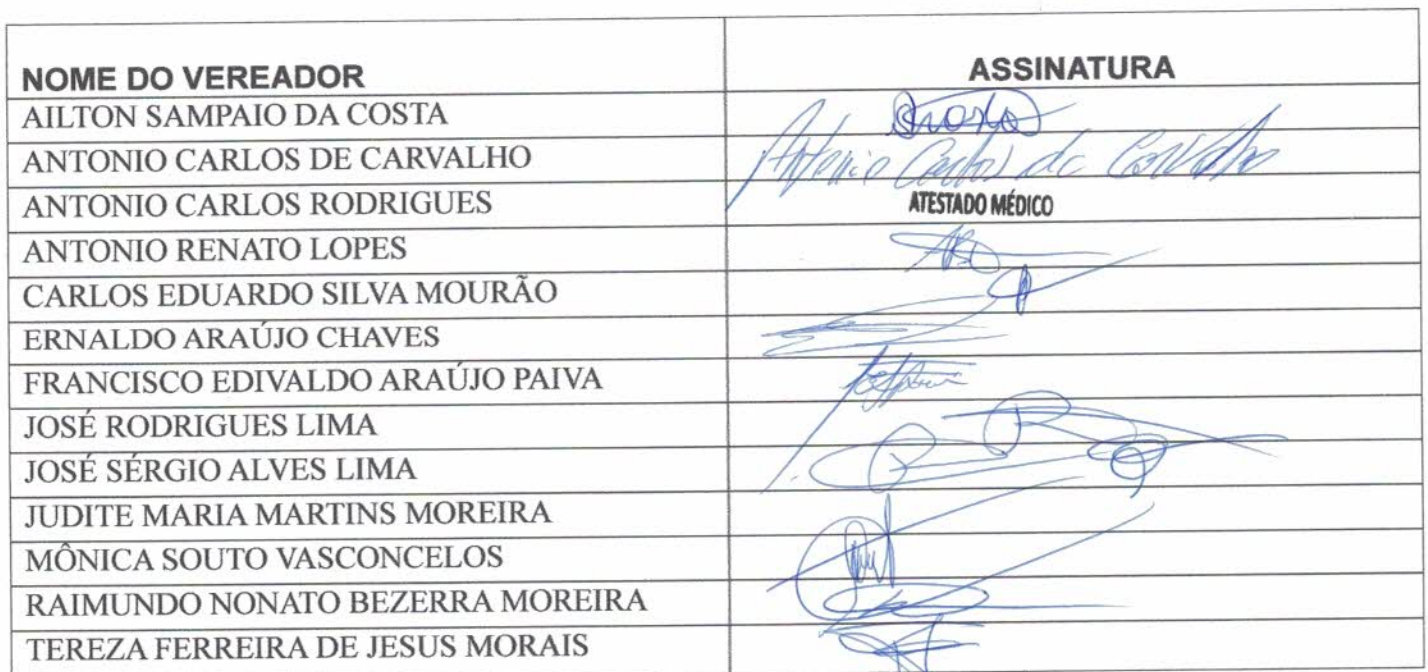 NOME DO VEREADOR ASSINATURA
AILTON SAMPAIO DA COSTA
ANTONIO CARLOS DE CARVALHO Antonio Carlos de Carvalho
ANTONIO CARLOS RODRIGUES ATESTADO MÉDICO
ANTONIO RENATO LOPES
CARLOS EDUARDO SILVA MOURÃO
ERNALDO ARAÚJO CHAVES
FRANCISCO EDIVALDO ARAÚJO PAIVA
JOSÉ RODRIGUES LIMA
JOSÉ SÉRGIO ALVES LIMA
JUDITE MARIA MARTINS MOREIRA
MÔNICA SOUTO VASCONCELOS
RAIMUNDO NONATO BEZERRA MOREIRA
TEREZA FERREIRA DE JESUS MORAIS